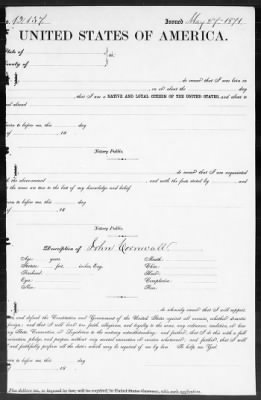 Issued May 27 1871
UNITED STATES OF AMERICA.
State of
County of
do swear that I was born in
on or about the day
, that I am a NATIVE AND LOYAL CITIZEN OF THE UNITED STATES, and about to
abroad
before me, this day
18
Notary Public.
do swear that I am acquainted
with the abovenamed , and with the facts stated by
and that
the same are true to the best of my knowledge and belief.
before me, this day
18
Notary Public.
Description of John Cornwall
Age: years Mouth:
Stature: feet, inches, Eng. Chin:
Forehead: Hair:
Eyes: Complexion:
Nose: Face:
do solemnly swear that I will support,
and defend the Constitution and Government of the United States against all enemies, whether domestic
foreign; and that I will bear true faith, allegiance, and loyalty to the same, any ordinance, resolution, or law
any State Convention or Legislature to the contrary notwithstanding; and further, that I do this with a full
determination, pledge, and purpose, without any mental reservation or evasion whatsoever; and further, that I will
and faithfully perform all the duties which may be required of me by law. So help me God.
before me, this day
18
Five dollars tax, as imposed by law, will be required, in United States Currency, with each application.